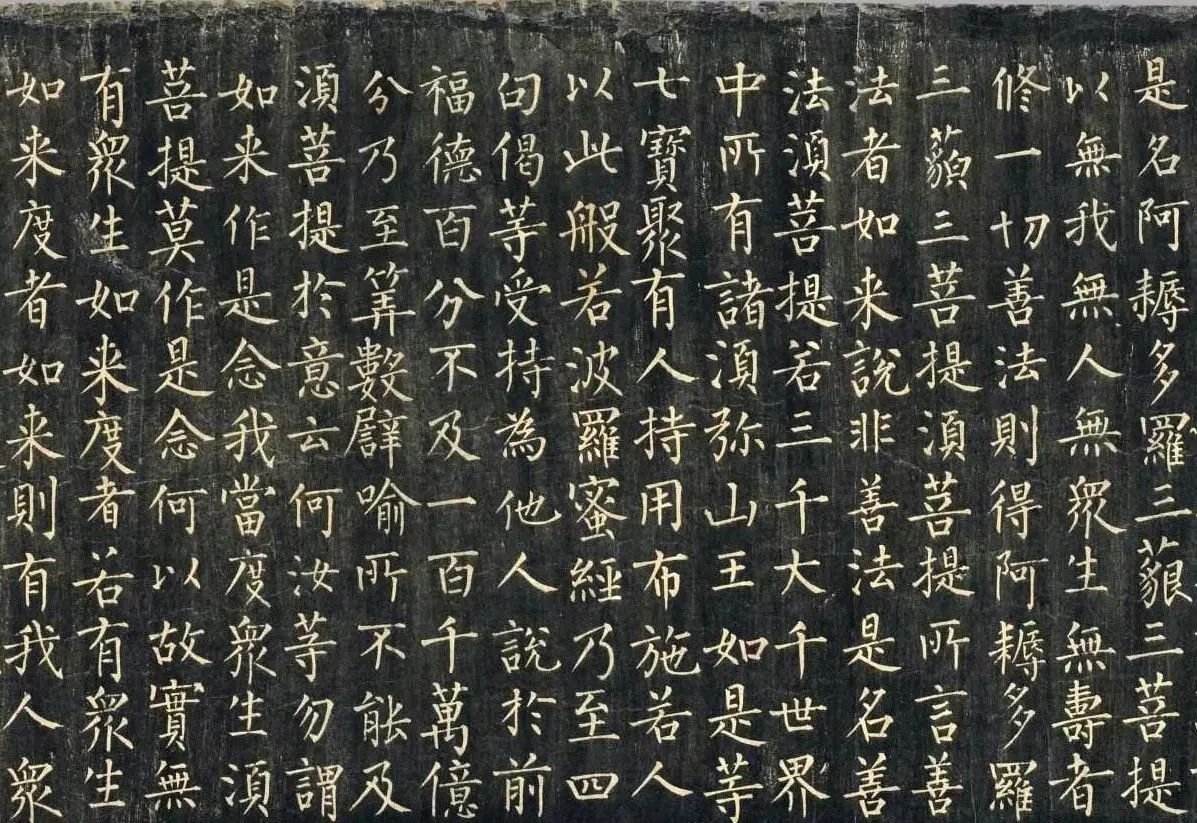 是名阿耨多羅三藐三菩提
以無我無人無眾生無壽者
修一切善法則得阿耨多羅
三藐三菩提須菩提所言善
法者如来說非善法是名善
法須菩提若三千大千世界
中所有諸須弥山王如是等
七寶聚有人持用布施若人
以此般若波羅蜜經乃至四
句偈等受持為他人說於前
福德百分不及一百千萬億
分乃至筭數譬喻所不能及
須菩提於意云何汝等勿謂
如来作是念我當度眾生須
菩提莫作是念何以故實無
有眾生如来度者若有眾生
如来度者如来則有我人眾